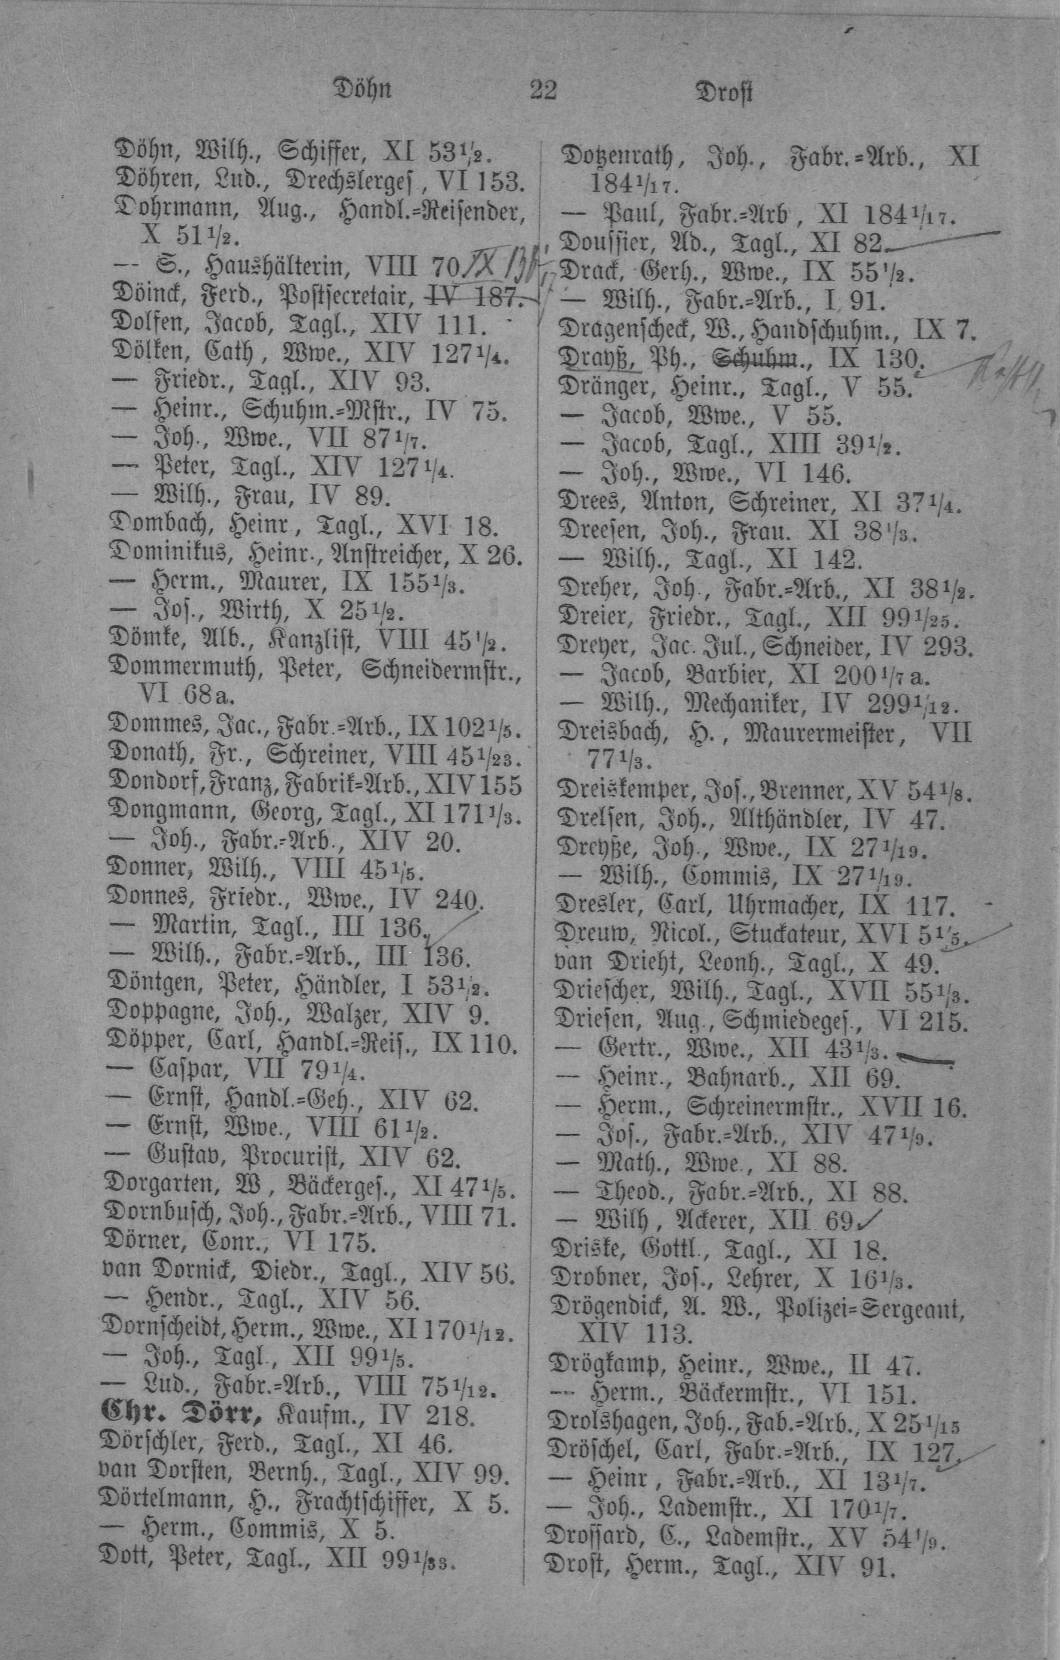 Döhn 22 Drost
Döhn, Wilh., Schiffer, XI 53 1/2.
Döhren, Lud., Drechslerges, VI 153.
Dohrmann, Aug., Handl.=Reisender,
X 51 1/2.
— S., Haushälterin, VIII 70
Döinck, Ferd., Postsecretair, IV 187.
Dolfen, Jacob, Tagl., XIV 111.
Dölken, Cath, Wwe., XIV 127 1/4.
— Friedr., Tagl., XIV 93.
— Heinr., Schuhm.=Mstr., IV 75.
— Joh., Wwe., VII 87 1/7.
— Peter, Tagl., XIV 127 1/4.
— Wilh., Frau, IV 89.
Dombach, Heinr, Tagl., XVI 18.
Dominikus, Heinr., Anstreicher, X 26.
— Herm., Maurer, IX 155 1/3.
— Jos., Wirth, X 25 1/2.
Dömke, Alb., Kanzlist, VIII 45 1/2.
Dommermuth, Peter, Schneidermstr.,
VI 68a.
Dommes, Jac., Fabr.=Arb., IX 102 1/5.
Donath, Fr., Schreiner, VIII 45 1/23.
Dondorf, Franz, Fabrik=Arb., XIV 155
Dongmann, Georg, Tagl., XI 171 1/3.
— Joh., Fabr.=Arb., XIV 20.
Donner, Wilh., VIII 45 1/5.
Donnes, Friedr., Wwe., IV 240.
— Martin, Tagl., III 136.
— Wilh., Fabr.=Arb., III 136.
Döntgen, Peter, Händler, I 53 1/2.
Doppagne, Joh., Walzer, XIV 9.
Döpper, Carl, Handl.=Reis., IX 110.
— Caspar, VII 79 1/4.
— Ernst, Handl.=Geh., XIV 62.
— Ernst, Wwe., VIII 61 1/2.
— Gustav, Procurist, XIV 62.
Dorgarten, W, Bäckerges., XI 47 1/5.
Dornbusch, Joh., Fabr.=Arb., VIII 71.
Dörner, Conr., VI 175.
van Dornick, Diedr., Tagl., XIV 56.
— Hendr., Tagl., XIV 56.
Dornscheidt, Herm., Wwe., XI 170 1/12.
— Joh., Tagl., XII 99 1/5.
— Lud., Fabr.=Arb., VIII 75 1/12.
Chr. Dörr, Kaufm., IV 218.
Dörschler, Ferd., Tagl., XI 46.
van Dorsten, Bernh., Tagl., XIV 99.
Dörtelmann, H., Frachtschiffer, X 5.
— Herm., Commis, X 5.
Dott, Peter, Tagl., XII 99 1/33.
Dotzenrath, Joh., Fabr.=Arb., XI
184 1/17.
— Paul, Fabr.=Arb, XI 184 1/17.
Doussier, Ad., Tagl., XI 82.
Drack, Gerh., Wwe., IX 55 1/2.
— Wilh., Fabr.=Arb., I 91.
Dragenscheck, W., Handschuhm., IX 7.
Drayß, Ph., Schuhm., IX 130.
Dränger, Heinr., Tagl., V 55.
— Jacob, Wwe., V 55.
— Jacob, Tagl., XIII 39 1/2.
— Joh., Wwe., VI 146.
Drees, Anton, Schreiner, XI 37 1/4.
Dreesen, Joh., Frau. XI 38 1/3.
— Wilh., Tagl., XI 142.
Dreher, Joh., Fabr.=Arb., XI 38 1/2.
Dreier, Friedr., Tagl., XII 99 1/25.
Dreyer, Jac. Jul., Schneider, IV 293.
— Jacob, Barbier, XI 200 1/7 a.
— Wilh., Mechaniker, IV 299 1/12.
Dreisbach, H., Maurermeister, VII
77 1/3.
Dreiskemper, Jos., Brenner, XV 54 1/8.
Drelsen, Joh., Althändler, IV 47.
Dreyße, Joh., Wwe., IX 27 1/19.
— Wilh., Commis, IX 27 1/19.
Dresler, Carl, Uhrmacher, IX 117.
Dreuw, Nicol., Stuckateur, XVI 5 1/5.
van Drieht, Leonh., Tagl., X 49.
Driescher, Wilh., Tagl., XVII 55 1/3.
Driesen, Aug., Schmiedeges., VI 215.
— Gertr., Wwe., XII 43 1/3.
— Heinr., Bahnarb., XII 69.
— Herm., Schreinermstr., XVII 16.
— Jos., Fabr.=Arb., XIV 47 1/9.
— Math., Wwe., XI 88.
— Theod., Fabr.=Arb., XI 88.
— Wilh, Ackerer, XII 69
Driske, Gottl., Tagl., XI 18.
Drobner, Jos., Lehrer, X 16 1/3.
Drögendick, A. W., Polizei=Sergeant,
XIV 113.
Drögkamp, Heinr., Wwe., II 47.
— Herm., Bäckermstr., VI 151.
Drolshagen, Joh., Fab.=Arb., X 25 1/15
Dröschel, Carl, Fabr.=Arb., IX 127.
— Heinr, Fabr.=Arb., XI 13 1/7.
— Joh., Lademstr., XI 170 1/7.
Drossard, C., Lademstr., XV 54 1/9.
Drost, Herm., Tagl., XIV 91.